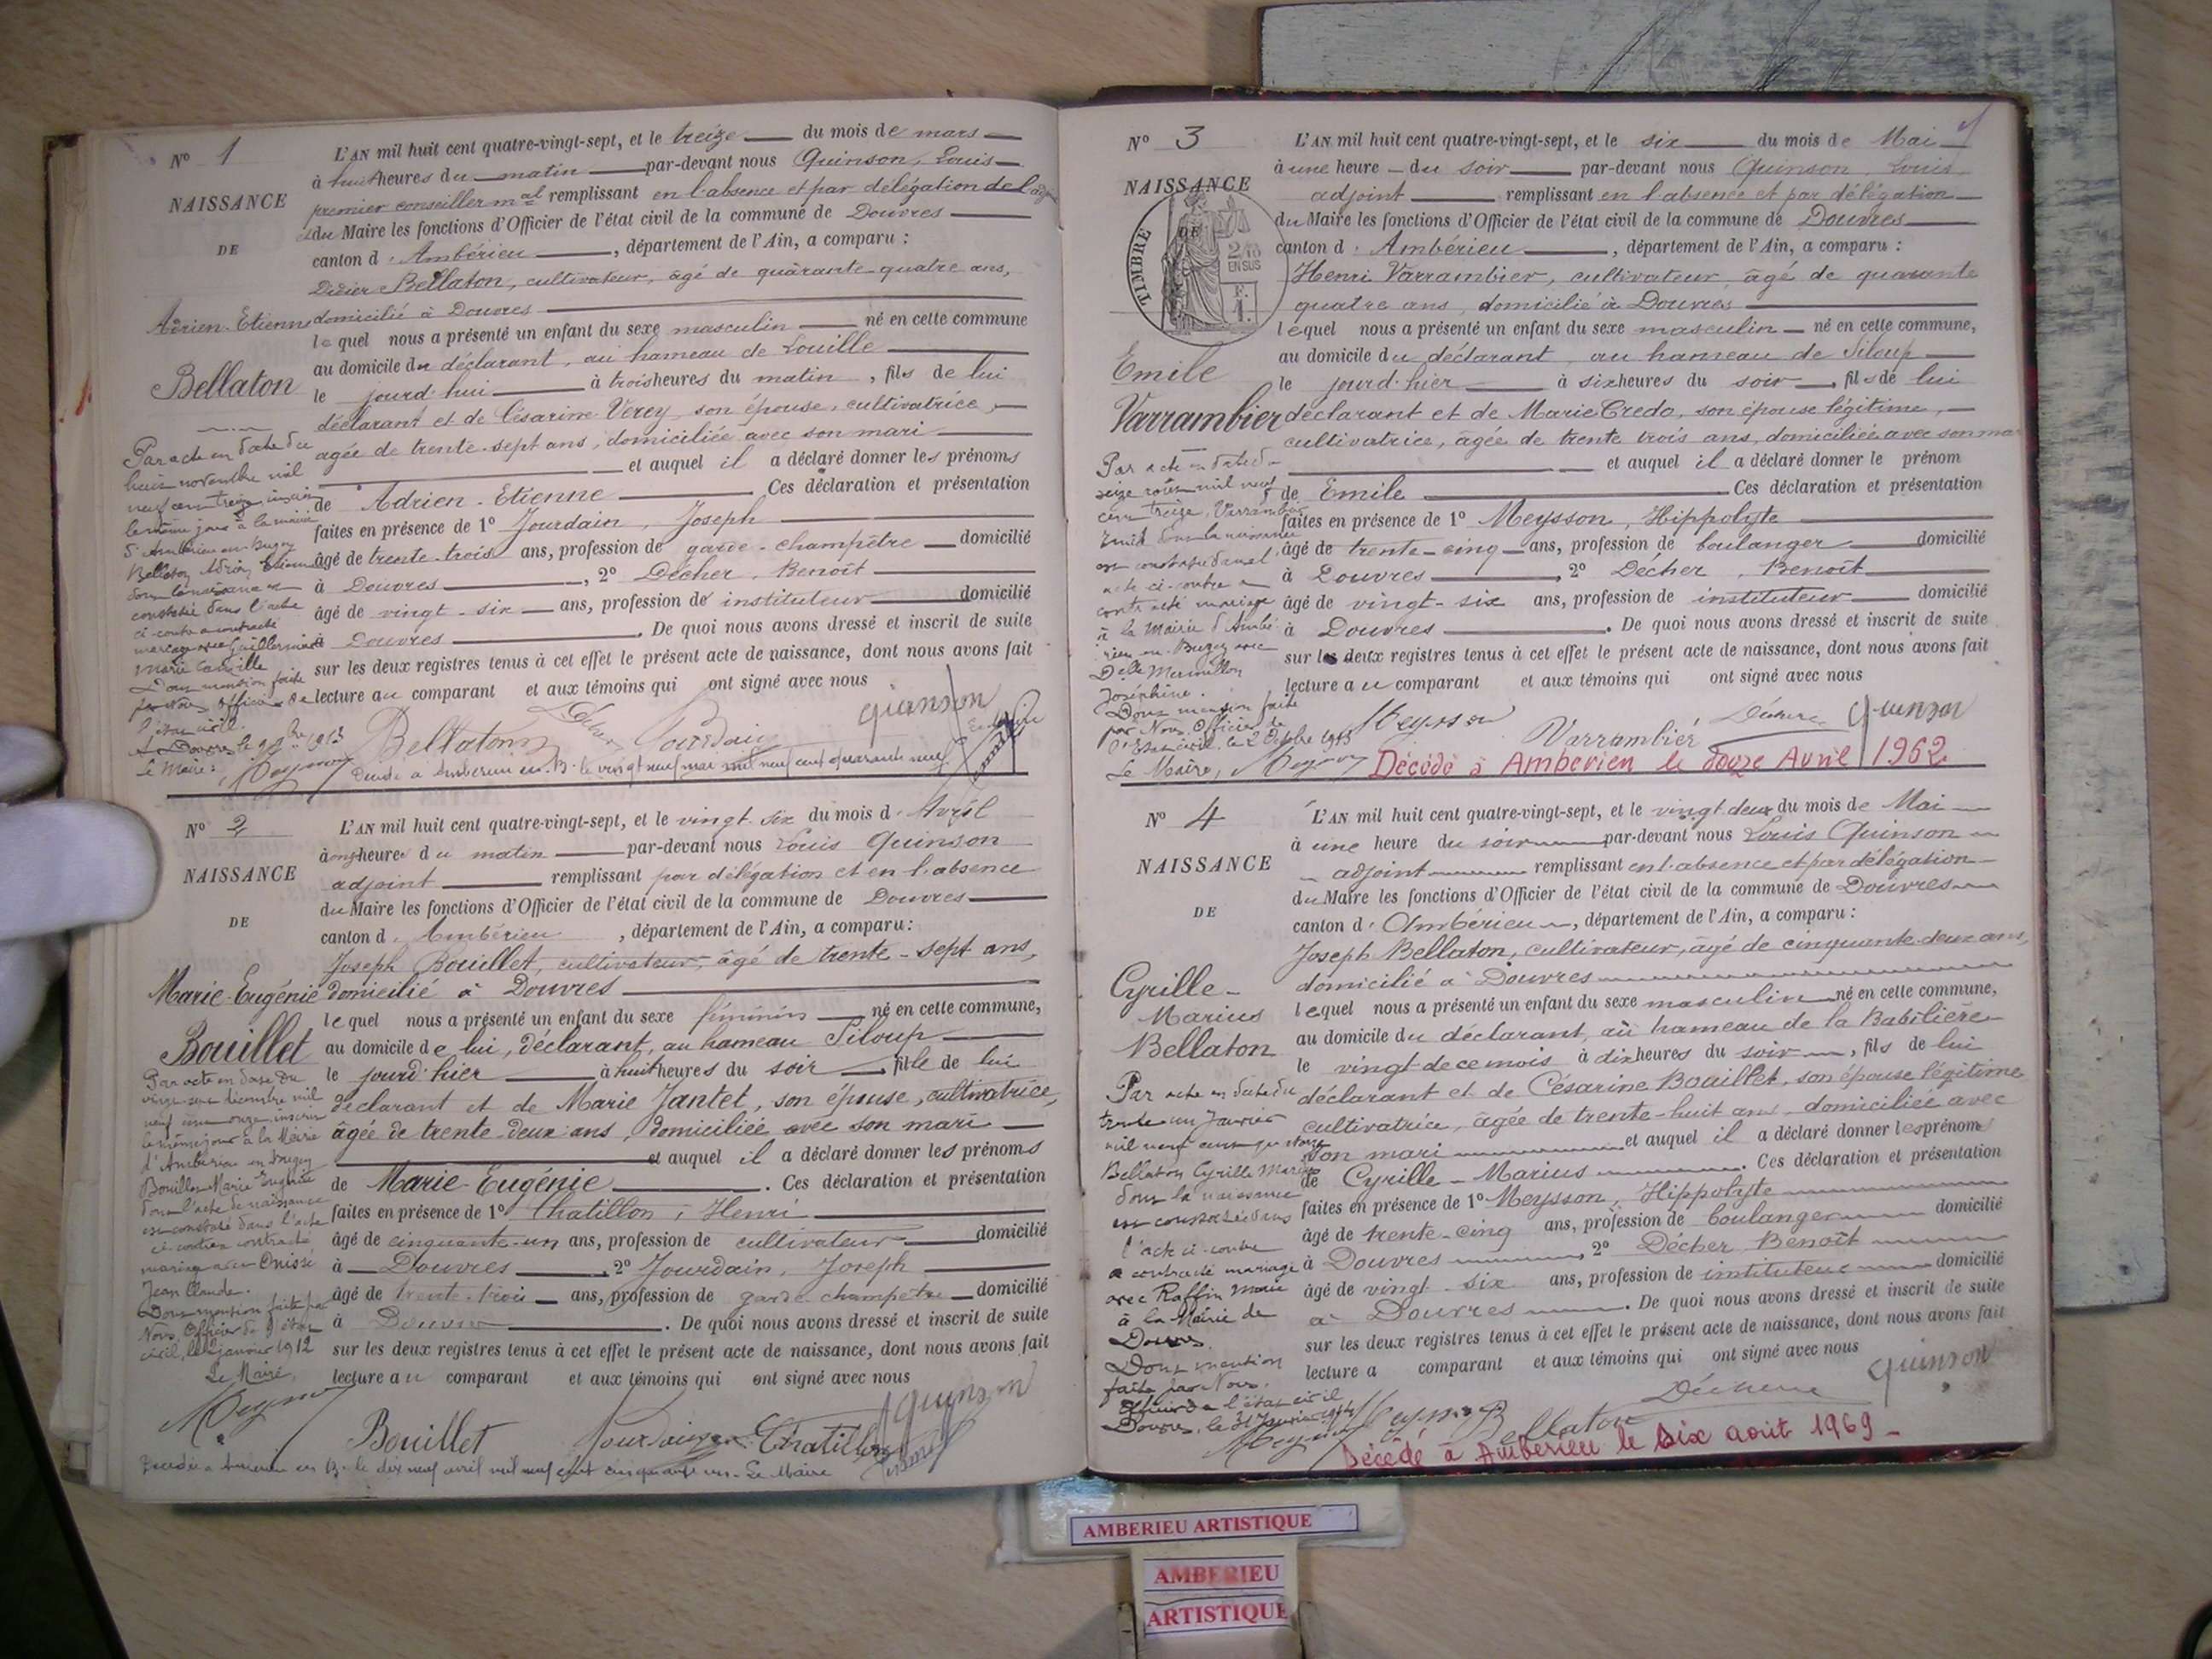 N° 1
NAISSANCE
DE
Adrien-Etienne
Bellaton
L'AN mil huit cent quatre-vingt-sept, et le treize du mois de mars
à huit heures du matin par-devant nous Quinson, Louis
premier conseiller mal remplissant en l'absence et par délégation de l'adj
et du Maire les fonctions d'Officier de l'état civil de la commune de Douvres
canton d'Ambérieu, département de l'Ain, a comparu :
Didier Bellaton, cultivateur, âgé de quarante-quatre ans,
domicilié à Douvres
lequel nous a présenté un enfant du sexe masculin né en cette commune
au domicile du déclarant, au hameau de Louille
le jourd'hui à trois heures du matin, fils de lui
déclarant et de Césarine Verey, son épouse, cultivatrice,
âgée de trente-sept ans, domiciliée avec son mari
et auquel il a déclaré donner les prénoms
de Adrien-Etienne Ces déclaration et présentation
faites en présence de 1° Jourdain, Joseph
âgé de trente-trois ans, profession de garde-champêtre domicilié
à Douvres, 2° Décher, Benoît
âgé de vingt-six ans, profession de instituteur domicilié
à Douvres. De quoi nous avons dressé et inscrit de suite
sur les deux registres tenus à cet effet le présent acte de naissance, dont nous avons fait
lecture au comparant et aux témoins qui ont signé avec nous
Par acte en date du
huit novembre mil
neuf cent treize inscrit
le même jour à la mairie
d'Ambérieu-en-Bugey
Bellaton Adrien Etienne
dont la naissance est
constatée dans l'acte
ci-contre a contracté
mariage avec Guillermin
Marie Camille
Dont mention faite
par Nous Officier de
l'état civil
à Douvres le 9 9bre 1913
Le Maire:
Bellaton Jourdain Quinson
Décédé à Ambérieu en B. le vingt neuf mai mil neuf cent quarante neuf
N° 2
NAISSANCE
DE
Marie-Eugénie
Bouillet
L'AN mil huit cent quatre-vingt-sept, et le vingt-six du mois d'Avril
à onze heures du matin par-devant nous Louis Quinson
adjoint remplissant par délégation et en l'absence
du Maire les fonctions d'Officier de l'état civil de la commune de Douvres
canton d'Ambérieu, département de l'Ain, a comparu:
Joseph Bouillet, cultivateur, âgé de trente-sept ans,
domicilié à Douvres
lequel nous a présenté un enfant du sexe féminin né en cette commune,
au domicile de lui, déclarant, au hameau Siloup
le jourd'hier à huit heures du soir fille de lui
déclarant et de Marie Jantet, son épouse, cultivatrice,
âgée de trente-deux ans, domiciliée avec son mari
et auquel il a déclaré donner les prénoms
de Marie-Eugénie. Ces déclaration et présentation
faites en présence de 1° Chatillon, Henri
âgé de cinquante-un ans, profession de cultivateur domicilié
à Douvres, 2° Jourdain, Joseph
âgé de trente-trois ans, profession de garde-champêtre domicilié
à Douvres. De quoi nous avons dressé et inscrit de suite
sur les deux registres tenus à cet effet le présent acte de naissance, dont nous avons fait
lecture au comparant et aux témoins qui ont signé avec nous
Par acte en date du
décembre mil
neuf cent onze inscrit
le même jour à la Mairie
d'Ambérieu en Bugey
Bouillet Marie Eugénie
dont l'acte de naissance
est constaté dans l'acte
ci-contre a contracté
mariage avec
Jean Claude.
Dont mention faite par
Nous, Officier de l'état
civil, le janvier 1912
Le Maire,
Bouillet Jourdain Chatillon Quinson
Décédée à Ambérieu en B. le dix neuf avril mil neuf cent cinquante un. Le Maire
N° 3
NAISSANCE
DE
TIMBRE
2/10
EN SUS
F.
1.
Emile
Varrambier
L'AN mil huit cent quatre-vingt-sept, et le six du mois de Mai
à une heure du soir par-devant nous Quinson, Louis
adjoint remplissant en l'absence et par délégation
du Maire les fonctions d'Officier de l'état civil de la commune de Douvres
canton d'Ambérieu, département de l'Ain, a comparu :
Henri Varrambier, cultivateur, âgé de quarante
quatre ans, domicilié à Douvres
lequel nous a présenté un enfant du sexe masculin né en cette commune,
au domicile du déclarant, au hameau de Siloup
le jourd'hier à six heures du soir, fils de lui
déclarant et de Marie Credo, son épouse légitime,
cultivatrice, âgée de trente trois ans, domiciliée avec son mari
et auquel il a déclaré donner le prénom
de Emile Ces déclaration et présentation
faites en présence de 1° Meysson, Hippolyte
âgé de trente-cinq ans, profession de boulanger domicilié
à Douvres, 2° Décher, Benoît
âgé de vingt-six ans, profession de instituteur domicilié
à Douvres. De quoi nous avons dressé et inscrit de suite
sur les deux registres tenus à cet effet le présent acte de naissance, dont nous avons fait
lecture au comparant et aux témoins qui ont signé avec nous
Par acte en date du
seize août mil neuf
cent treize, Varrambier
Emile dont la naissance
est constatée dans l'
acte ci-contre a
contracté mariage
à la Mairie d'Ambé
rieu-en-Bugey avec
Delle Mermillon
Joséphine.
Dont mention faite
par Nous, Officier de
l'Etat civil, le 2 Octobre 1913
Le Maire,
Meysson Varrambier Quinson
Décédé à Amberieu le douze Avril 1962.
N° 4
NAISSANCE
DE
Cyrille-
Marius
Bellaton
L'AN mil huit cent quatre-vingt-sept, et le vingt-deux du mois de Mai
à une heure du soir par-devant nous Louis Quinson
adjoint remplissant en l'absence et par délégation
du Maire les fonctions d'Officier de l'état civil de la commune de Douvres
canton d'Ambérieu, département de l'Ain, a comparu :
Joseph Bellaton, cultivateur, âgé de cinquante-deux ans,
domicilié à Douvres
lequel nous a présenté un enfant du sexe masculin né en cette commune,
au domicile du déclarant, au hameau de la Babilière
le vingt de ce mois à dix heures du soir, fils de lui
déclarant et de Césarine Bouillet, son épouse légitime
cultivatrice, âgée de trente-huit ans, domiciliée avec
son mari et auquel il a déclaré donner les prénoms
de Cyrille-Marius. Ces déclaration et présentation
faites en présence de 1° Meysson, Hippolyte
âgé de trente-cinq ans, profession de boulanger domicilié
à Douvres, 2° Décher Benoît
âgé de vingt-six ans, profession de instituteur domicilié
à Douvres. De quoi nous avons dressé et inscrit de suite
sur les deux registres tenus à cet effet le présent acte de naissance, dont nous avons fait
lecture a comparant et aux témoins qui ont signé avec nous
Par acte en date du
trente un Janvier
mil neuf cent quatorze
Bellaton Cyrille Marius
dont la naissance
est constatée dans
l'acte ci-contre
a contracté mariage
avec Raffin Marie
à la Mairie de
Douvres.
Dont mention
faite par Nous,
Officier de l'état civil
Douvres, le 31 Janvier 1914
Bellaton Quinson
Décédé à Amberieu le Six août 1969 -
AMBERIEU ARTISTIQUE
AMBERIEU
ARTISTIQUE